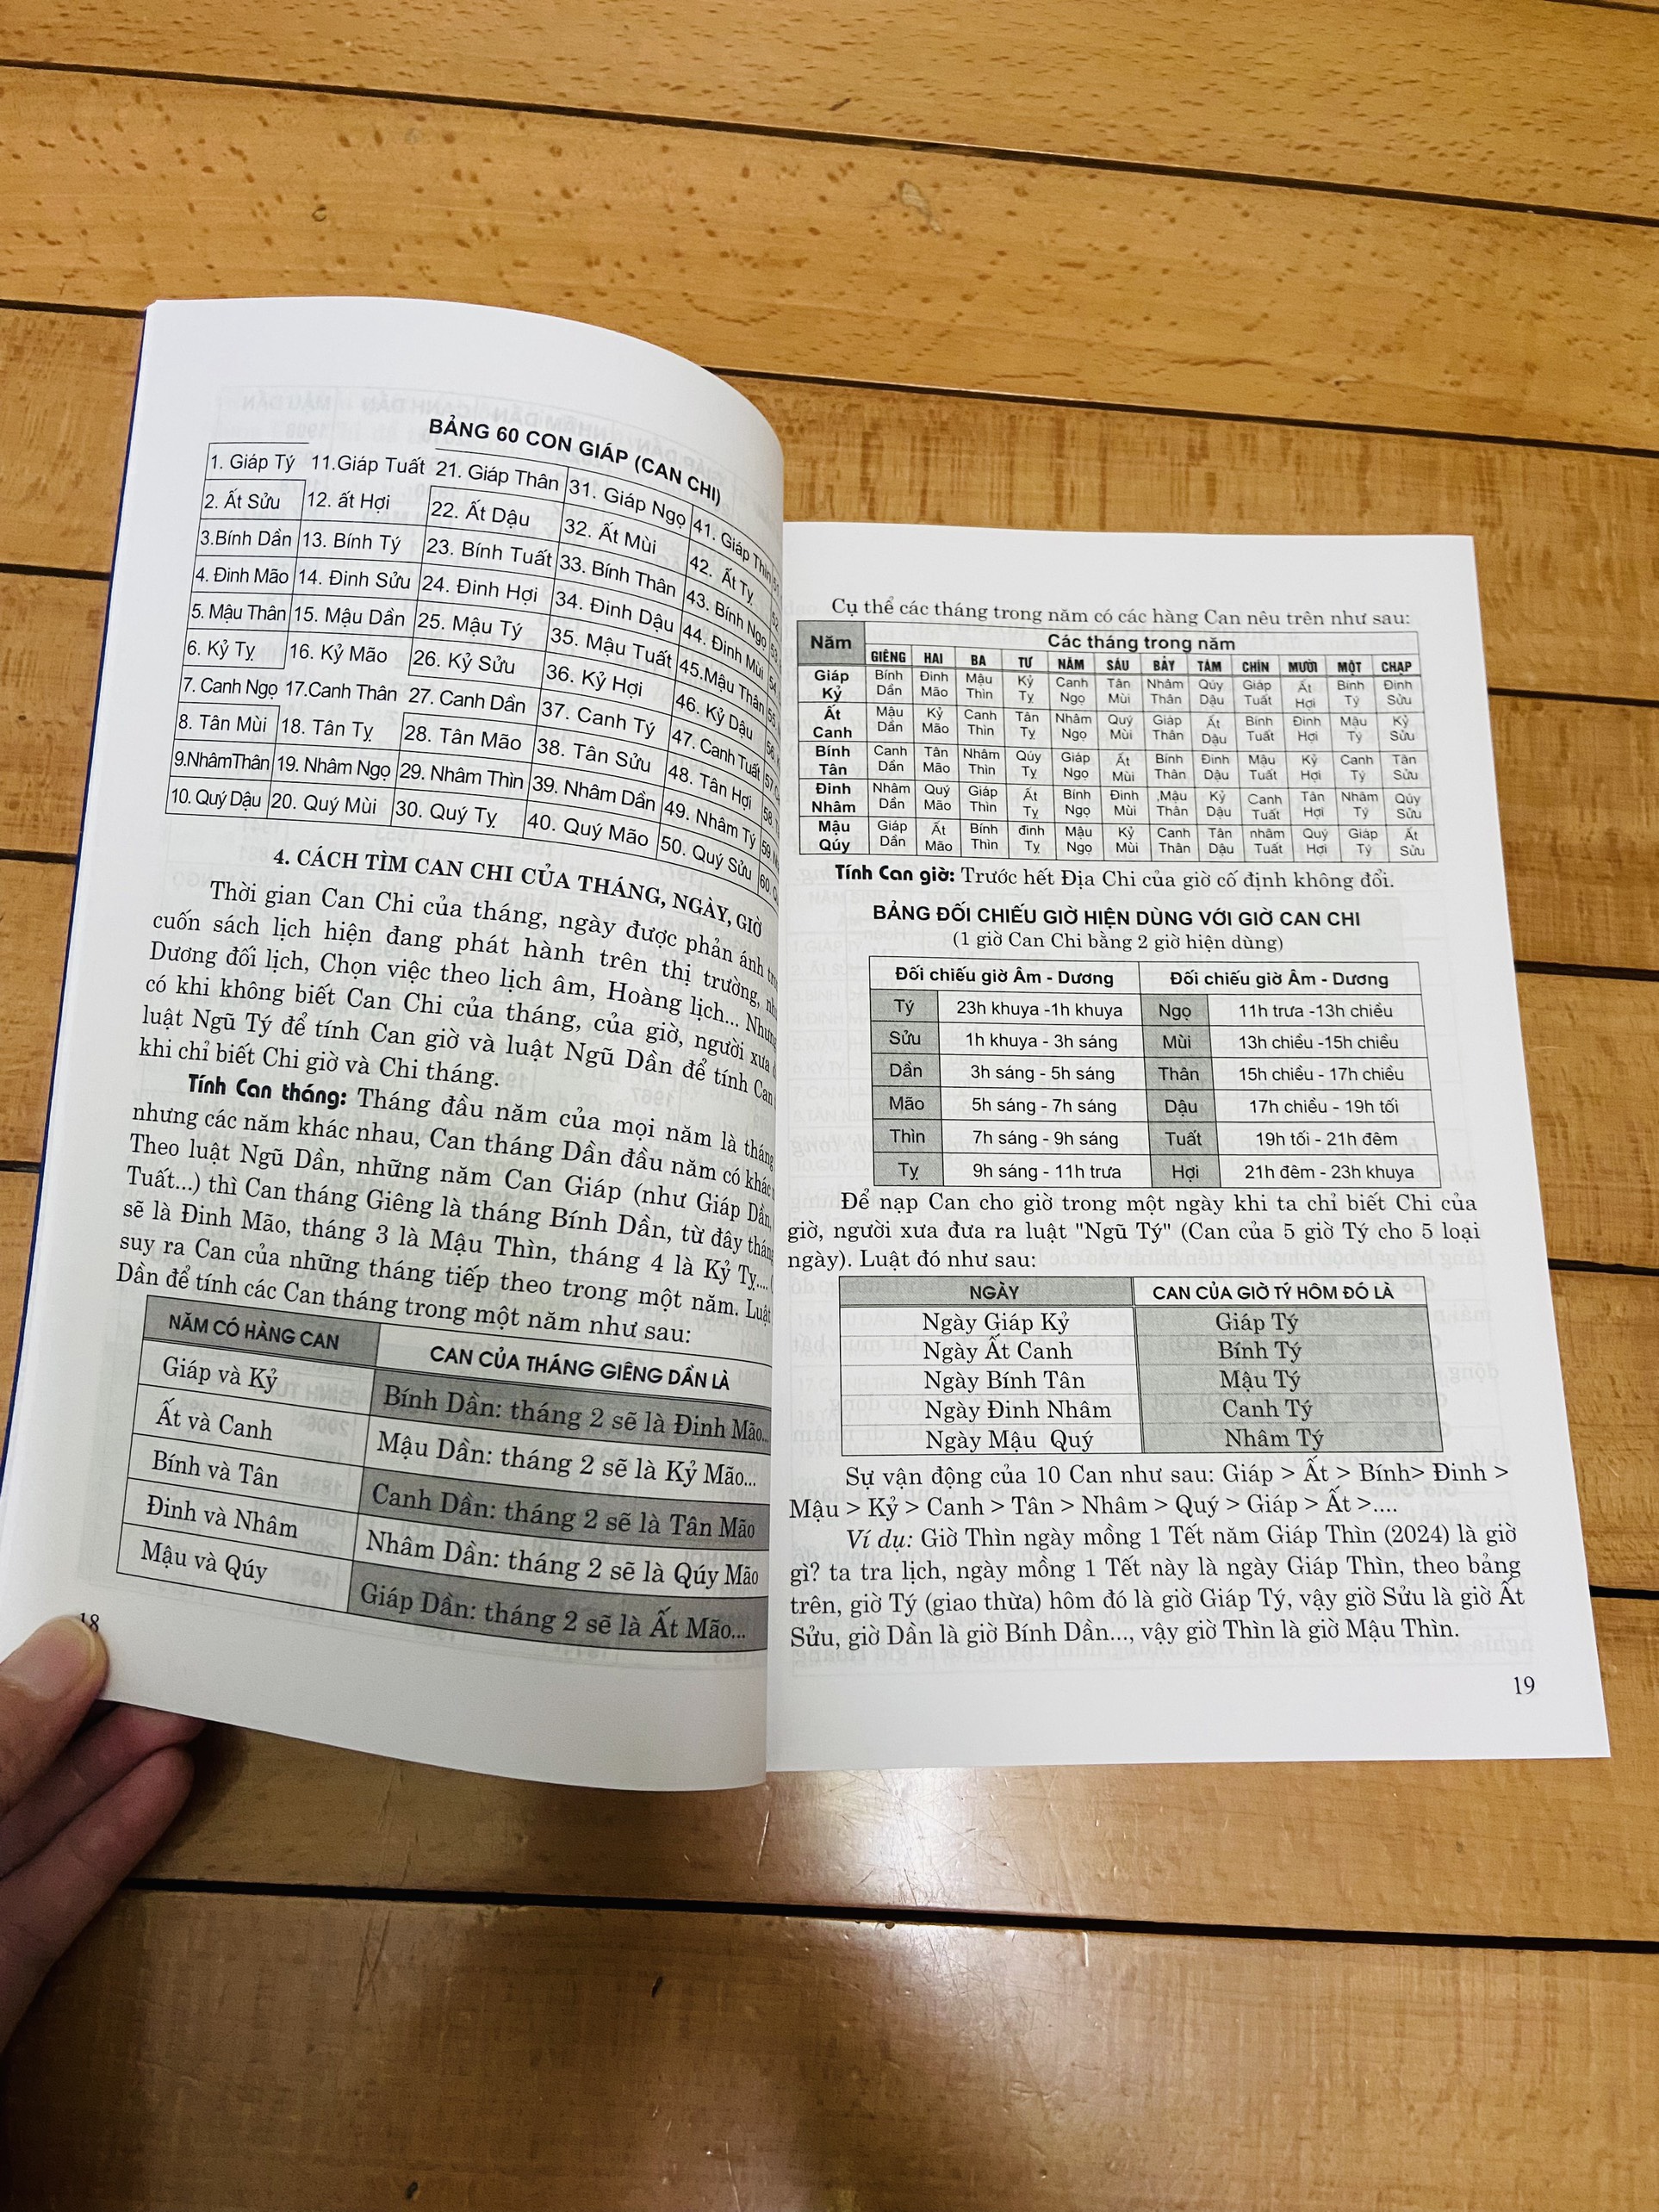 BẢNG 60 CON GIÁP (CAN CHI)
1. Giáp Tý 11.Giáp Tuất 21. Giáp Thân 31. Giáp Ngọ 41. Giáp Thìn
2. Ất Sửu 12. ất Hợi 22. Ất Dậu 32. Ất Mùi 42. Ất Tỵ
3.Bính Dần 13. Bính Tý 23. Bính Tuất 33. Bính Thân 43. Bính Ngọ
4. Đinh Mão 14. Đinh Sửu 24. Đinh Hợi 34. Đinh Dậu 44. Đinh Mùi
5. Mậu Thân 15. Mậu Dần 25. Mậu Tý 35. Mậu Tuất 45.Mậu Thân
6. Kỷ Tỵ 16. Kỷ Mão 26. Kỷ Sửu 36. Kỷ Hợi 46. Kỷ Dậu
7. Canh Ngọ 17.Canh Thân 27. Canh Dần 37. Canh Tý 47. Canh Tuất
8. Tân Mùi 18. Tân Tỵ 28. Tân Mão 38. Tân Sửu 48. Tân Hợi
9.NhâmThân 19. Nhâm Ngọ 29. Nhâm Thìn 39. Nhâm Dần 49. Nhâm Tý
10. Quý Dậu 20. Quý Mùi 30. Quý Tỵ 40. Quý Mão 50. Quý Sửu
4. CÁCH TÌM CAN CHI CỦA THÁNG, NGÀY, GIỜ
Thời gian Can Chi của tháng, ngày được phản ánh
cuốn sách lịch hiện đang phát hành trên thị trường,
Dương đối lịch, Chọn việc theo lịch âm, Hoàng lịch... Nhưng
có khi không biết Can Chi của tháng, của giờ, người xưa
luật Ngũ Tý để tính Can giờ và luật Ngũ Dần để tính Can
khi chỉ biết Chi giờ và Chi tháng.
Tính Can tháng: Tháng đầu năm của mọi năm là tháng
nhưng các năm khác nhau, Can tháng Dần đầu năm có khác
Theo luật Ngũ Dần, những năm Can Giáp (như Giáp Dần,
Tuất...) thì Can tháng Giêng là tháng Bính Dần, từ đây tháng
sẽ là Đinh Mão, tháng 3 là Mậu Thìn, tháng 4 là Kỷ Tỵ...
suy ra Can của những tháng tiếp theo trong một năm. Luật
Dần để tính các Can tháng trong một năm như sau:
NĂM CÓ HÀNG CAN CAN CỦA THÁNG GIÊNG DẦN LÀ
Giáp và Kỷ Bính Dần: tháng 2 sẽ là Đinh Mão...
Ất và Canh Mậu Dần: tháng 2 sẽ là Kỷ Mão...
Bính và Tân Canh Dần: tháng 2 sẽ là Tân Mão
Đinh và Nhâm Nhâm Dần: tháng 2 sẽ là Qúy Mão
Mậu và Qúy Giáp Dần: tháng 2 sẽ là Ất Mão...
18
Cụ thể các tháng trong năm có các hàng Can nêu trên như sau:
Năm Các tháng trong năm
GIÊNG HAI BA TƯ NĂM SÁU BẢY TÁM CHÍN MƯỜI MỘT CHẠP
Giáp Bính Đinh Mậu Kỷ Canh Tân Nhâm Qúy Giáp Ất Bính Đinh
Kỷ Dần Mão Thìn Tỵ Ngọ Mùi Thân Dậu Tuất Hợi Tý Sửu
Ất Mậu Kỷ Canh Tân Nhâm Quý Giáp Ất Bính Đinh Mậu Kỷ
Canh Dần Mão Thìn Tỵ Ngọ Mùi Thân Dậu Tuất Hợi Tý Sửu
Bính Canh Tân Nhâm Qúy Giáp Ất Bính Đinh Mậu Kỷ Canh Tân
Tân Dần Mão Thìn Tỵ Ngọ Mùi Thân Dậu Tuất Hợi Tý Sửu
Đinh Nhâm Quý Giáp Ất Bính Đinh Mậu Kỷ Canh Tân Nhâm Qúy
Nhâm Dần Mão Thìn Tỵ Ngọ Mùi Thân Dậu Tuất Hợi Tý Sửu
Mậu Giáp Ất Bính đinh Mậu Kỷ Canh Tân nhâm Quý Giáp Ất
Qúy Dần Mão Thìn Tỵ Ngọ Mùi Thân Dậu Tuất Hợi Tý Sửu
Tính Can giờ: Trước hết Địa Chi của giờ cố định không đổi.
BẢNG ĐỐI CHIẾU GIỜ HIỆN DÙNG VỚI GIỜ CAN CHI
(1 giờ Can Chi bằng 2 giờ hiện dùng)
Đối chiếu giờ Âm - Dương Đối chiếu giờ Âm - Dương
Tý 23h khuya -1h khuya Ngọ 11h trưa -13h chiều
Sửu 1h khuya - 3h sáng Mùi 13h chiều -15h chiều
Dần 3h sáng - 5h sáng Thân 15h chiều - 17h chiều
Mão 5h sáng - 7h sáng Dậu 17h chiều - 19h tối
Thìn 7h sáng - 9h sáng Tuất 19h tối - 21h đêm
Tỵ 9h sáng - 11h trưa Hợi 21h đêm - 23h khuya
Để nạp Can cho giờ trong một ngày khi ta chỉ biết Chi của
giờ, người xưa đưa ra luật "Ngũ Tý" (Can của 5 giờ Tý cho 5 loại
ngày). Luật đó như sau:
NGÀY CAN CỦA GIỜ TÝ HÔM ĐÓ LÀ
Ngày Giáp Kỷ Giáp Tý
Ngày Ất Canh Bính Tý
Ngày Bính Tân Mậu Tý
Ngày Đinh Nhâm Canh Tý
Ngày Mậu Quý Nhâm Tý
Sự vận động của 10 Can như sau: Giáp > Ất > Bính> Đinh >
Mậu > Kỷ > Canh > Tân > Nhâm > Quý > Giáp > Ất >....
Ví dụ: Giờ Thìn ngày mồng 1 Tết năm Giáp Thìn (2024) là giờ
gì? ta tra lịch, ngày mồng 1 Tết này là ngày Giáp Thìn, theo bảng
trên, giờ Tý (giao thừa) hôm đó là giờ Giáp Tý, vậy giờ Sửu là giờ Ất
Sửu, giờ Dần là giờ Bính Dần..., vậy giờ Thìn là giờ Mậu Thìn.
19